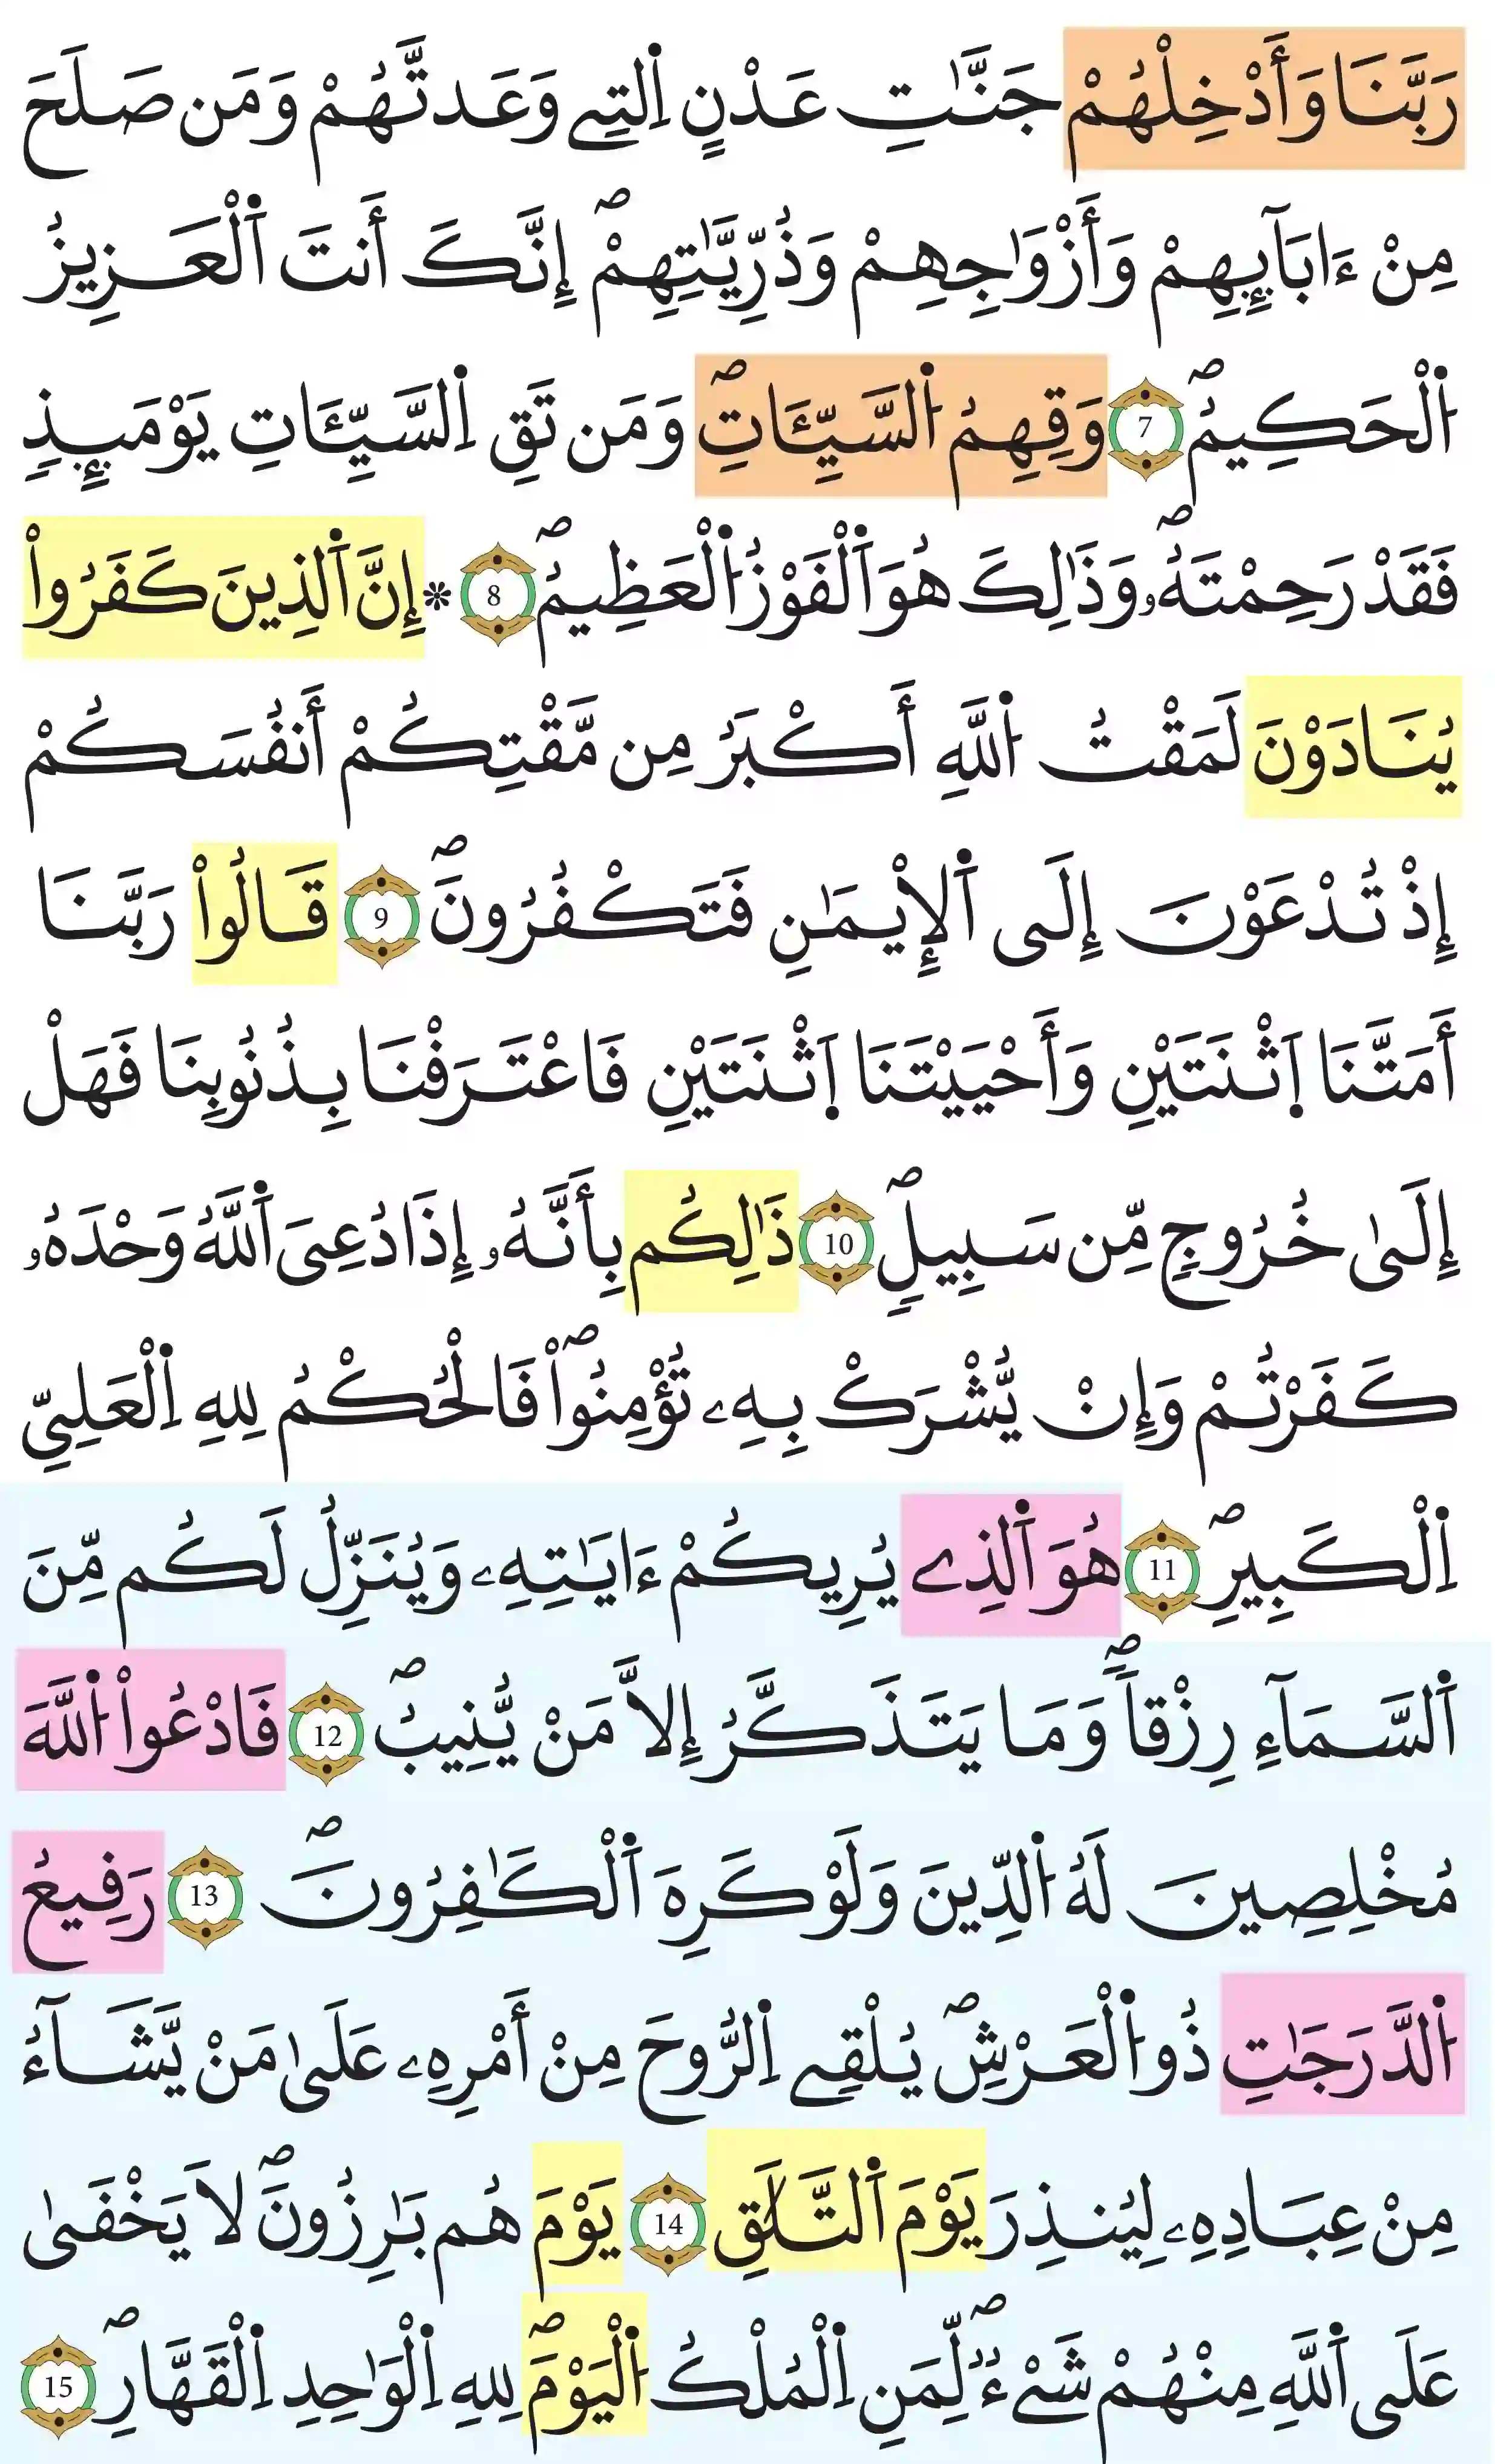 رَبَّنَا وَأَدْخِلْهُمْ جَنَّٰتِ عَدْنٍ اِ۬لتِے وَعَدتَّهُمْ وَمَن صَلَحَ
مِنْ ءَابَآئِهِمْ وَأَزْوَٰجِهِمْ وَذُرِّيَّٰتِهِمْۖ إِنَّكَ أَنتَ اَ۬لْعَزِيزُ
اُ۬لْحَكِيمُۖ 7 وَقِهِمُ اُ۬لسَّيِّـَٔاتِۖ وَمَن تَقِ اِ۬لسَّيِّـَٔاتِ يَوْمَئِذٖ
فَقَدْ رَحِمْتَهُۥۖ وَذَٰلِكَ هُوَ اَ۬لْفَوْزُ اُ۬لْعَظِيمُۖ 8 * إِنَّ اَ۬لذِينَ كَفَرُواْ
يُنَادَوْنَ لَمَقْتُ اُ۬للَّهِ أَكْبَرُ مِن مَّقْتِكُمْ أَنفُسَكُمْ
إِذْ تُدْعَوْنَ إِلَى اَ۬لْإِيمَٰنِ فَتَكْفُرُونَۖ 9 قَالُواْ رَبَّنَا
أَمَتَّنَا اَ۪ثْنَتَيْنِ وَأَحْيَيْتَنَا اَ۪ثْنَتَيْنِ فَاعْتَرَفْنَا بِذُنُوبِنَا فَهَلْ
إِلَىٰ خُرُوجٖ مِّن سَبِيلٖۖ 10 ذَٰلِكُم بِأَنَّهُۥ إِذَا دُعِىَ اَ۬للَّهُ وَحْدَهُۥ
كَفَرْتُمْ وَإِنْ يُّشْرَكْ بِهِۦ تُؤْمِنُواْۖ فَالْحُكْمُ لِلهِ اِ۬لْعَلِيِّ
اِ۬لْكَبِيرِۖ 11 هُوَ اَ۬لذِے يُرِيكُمْ ءَايَٰتِهِۦ وَيُنَزِّلُ لَكُم مِّنَ
اَ۬لسَّمَآءِ رِزْقاٗۖ وَمَا يَتَذَكَّرُ إِلاَّ مَنْ يُّنِيبُۖ 12 فَادْعُواْ اُ۬للَّهَ
مُخْلِصِينَ لَهُ اُ۬لدِّينَ وَلَوْ كَرِهَ اَ۬لْكَٰفِرُونَۖ 13 رَفِيعُ
اُ۬لدَّرَجَٰتِ ذُو اُ۬لْعَرْشِۖ يُلْقِے اِ۬لرُّوحَ مِنْ أَمْرِهِۦ عَلَىٰ مَنْ يَّشَآءُ
مِنْ عِبَادِهِۦ لِيُنذِرَ يَوْمَ اَ۬لتَّلَٰقِ 14 يَوْمَ هُم بَٰرِزُونَۖ لاَ يَخْفَىٰ
عَلَى اَ۬للَّهِ مِنْهُمْ شَےْءٞۖ لِّمَنِ اِ۬لْمُلْكُ اُ۬لْيَوْمَۖ لِلهِ اِ۬لْوَٰحِدِ اِ۬لْقَهَّارِۖ 15